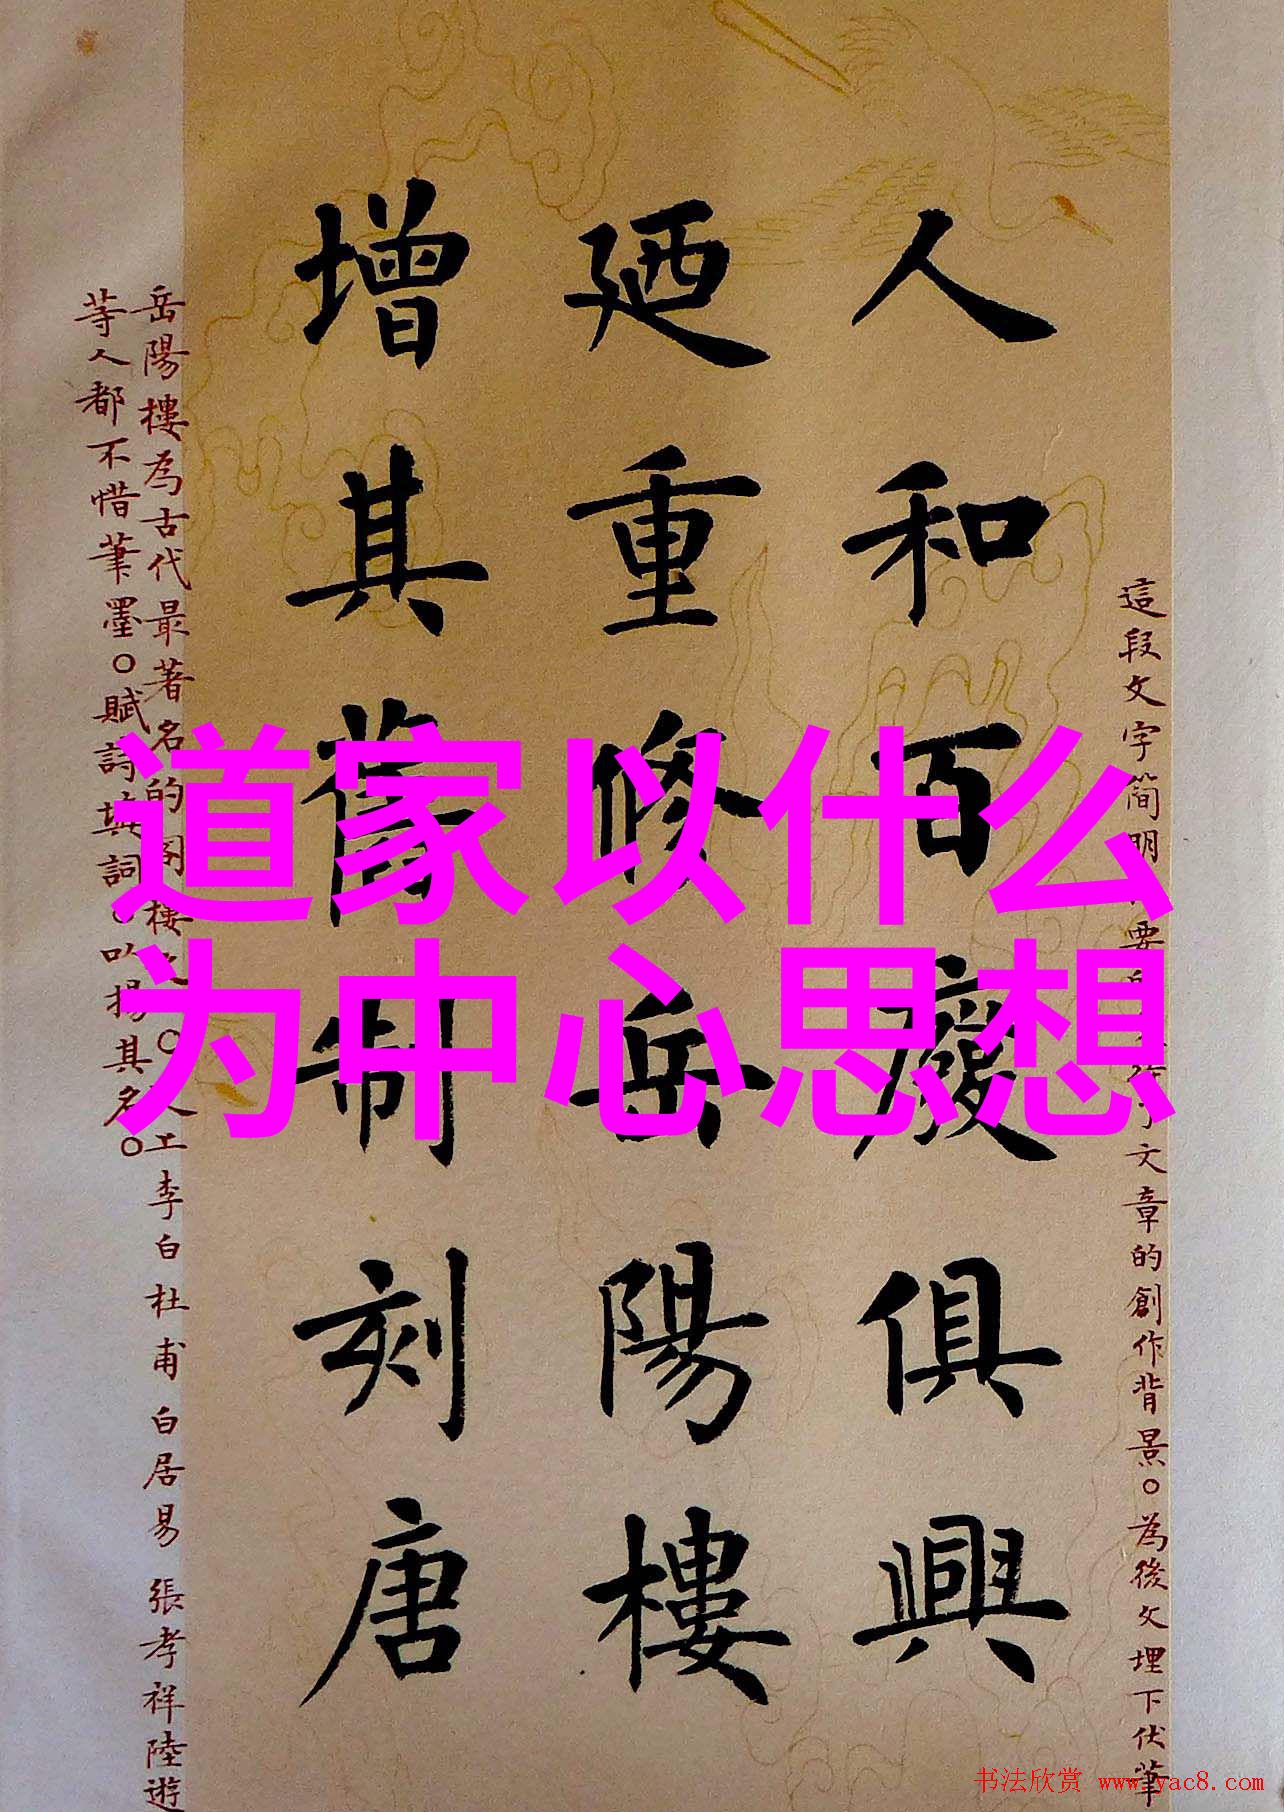 道家以什么
为中心思想
人和百廢俱興
廼重修岳陽樓
增其舊制刻唐
這段文字簡明
要
文章的創作背景。為後文埋下伏筆
岳陽樓為古代最著名的
工李白杜甫白居易張孝祥陸遊
等人都不惜筆墨。賦詩填詞。以揚其名。
书法欣赏 www.yac8.com